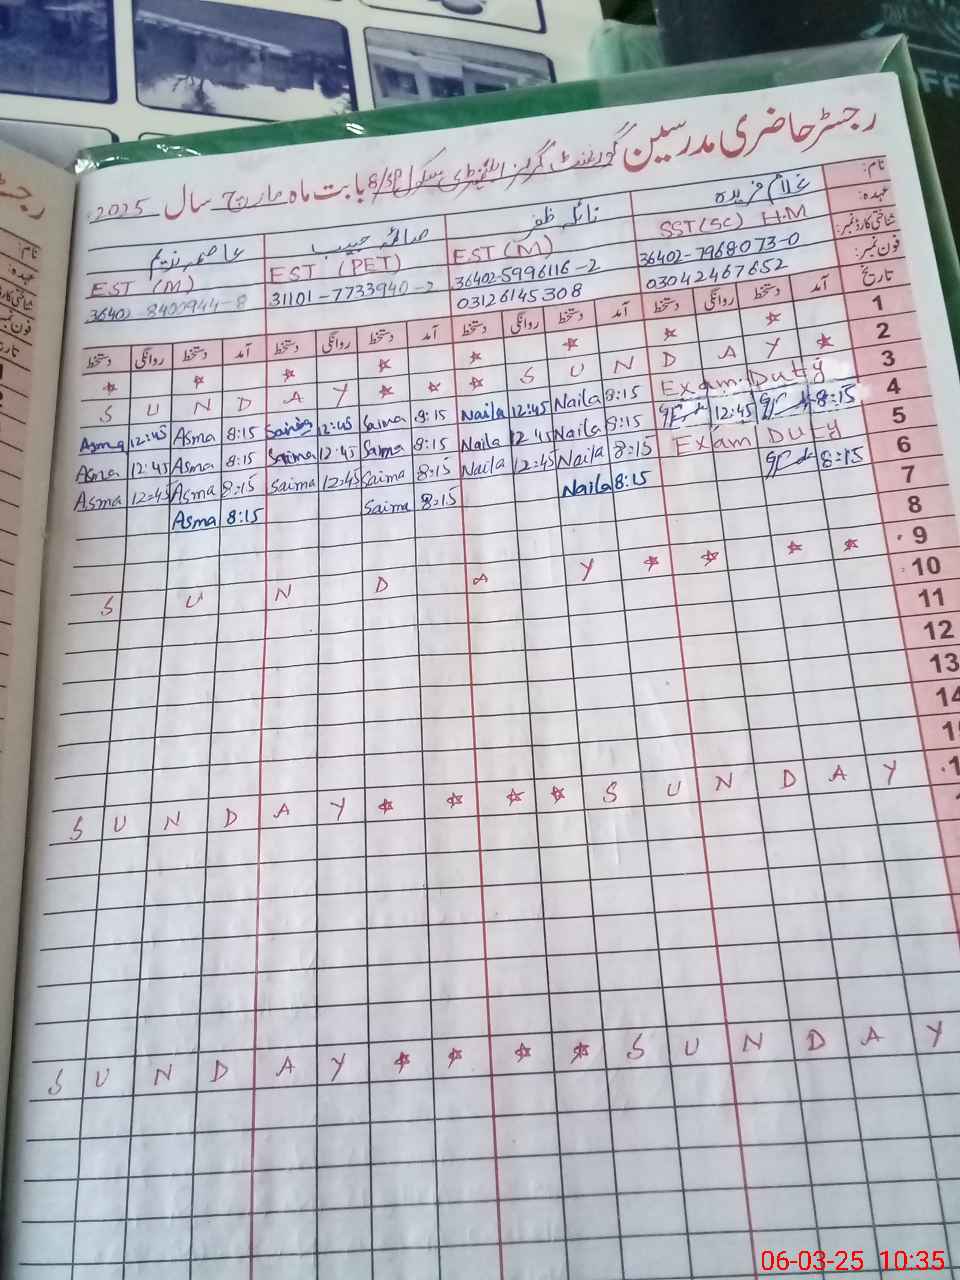 رجسٹر حاضری مدرسین گورنمنٹ گرلز ایلیمنٹری سکول 6/SP بابت ماہ مارچ سال 2025
نام: غلام فریدہ نائلہ ظفر صائمہ حبیب عاصمہ ندیم
عہدہ: SST(SC) H.M EST (M) EST (PET) EST (M)
شناختی کارڈ نمبر: 36402-7968073-0 36402-5996116-2 31101-7733940-2 36402-8400944-8
فون نمبر: 03042467652 03126145308
تاریخ آمد دستخط روانگی دستخط آمد دستخط روانگی دستخط آمد دستخط روانگی دستخط آمد دستخط روانگی دستخط
1
2 S U N D A Y S U N D A Y
3 Exam Duty 8:15 Naila 12:45 Naila 8:15 Saima 12:45 Saima 8:15 Asma 12:45 Asma
4 8:15 12:45 8:15 Naila 12:45 Naila 8:15 Saima 12:45 Saima 8:15 Asma 12:45 Asma
5 Exam Duty 8:15 Naila 12:45 Naila 8:15 Saima 12:45 Saima 8:15 Asma 12:45 Asma
6 8:15 8:15 Naila 8:15 Saima 8:15 Asma
7
8
9 S U N D A Y
10
11
12
13
14
S U N D A Y S U N D A Y
S U N D A Y S U N D A Y
06-03-25 10:35